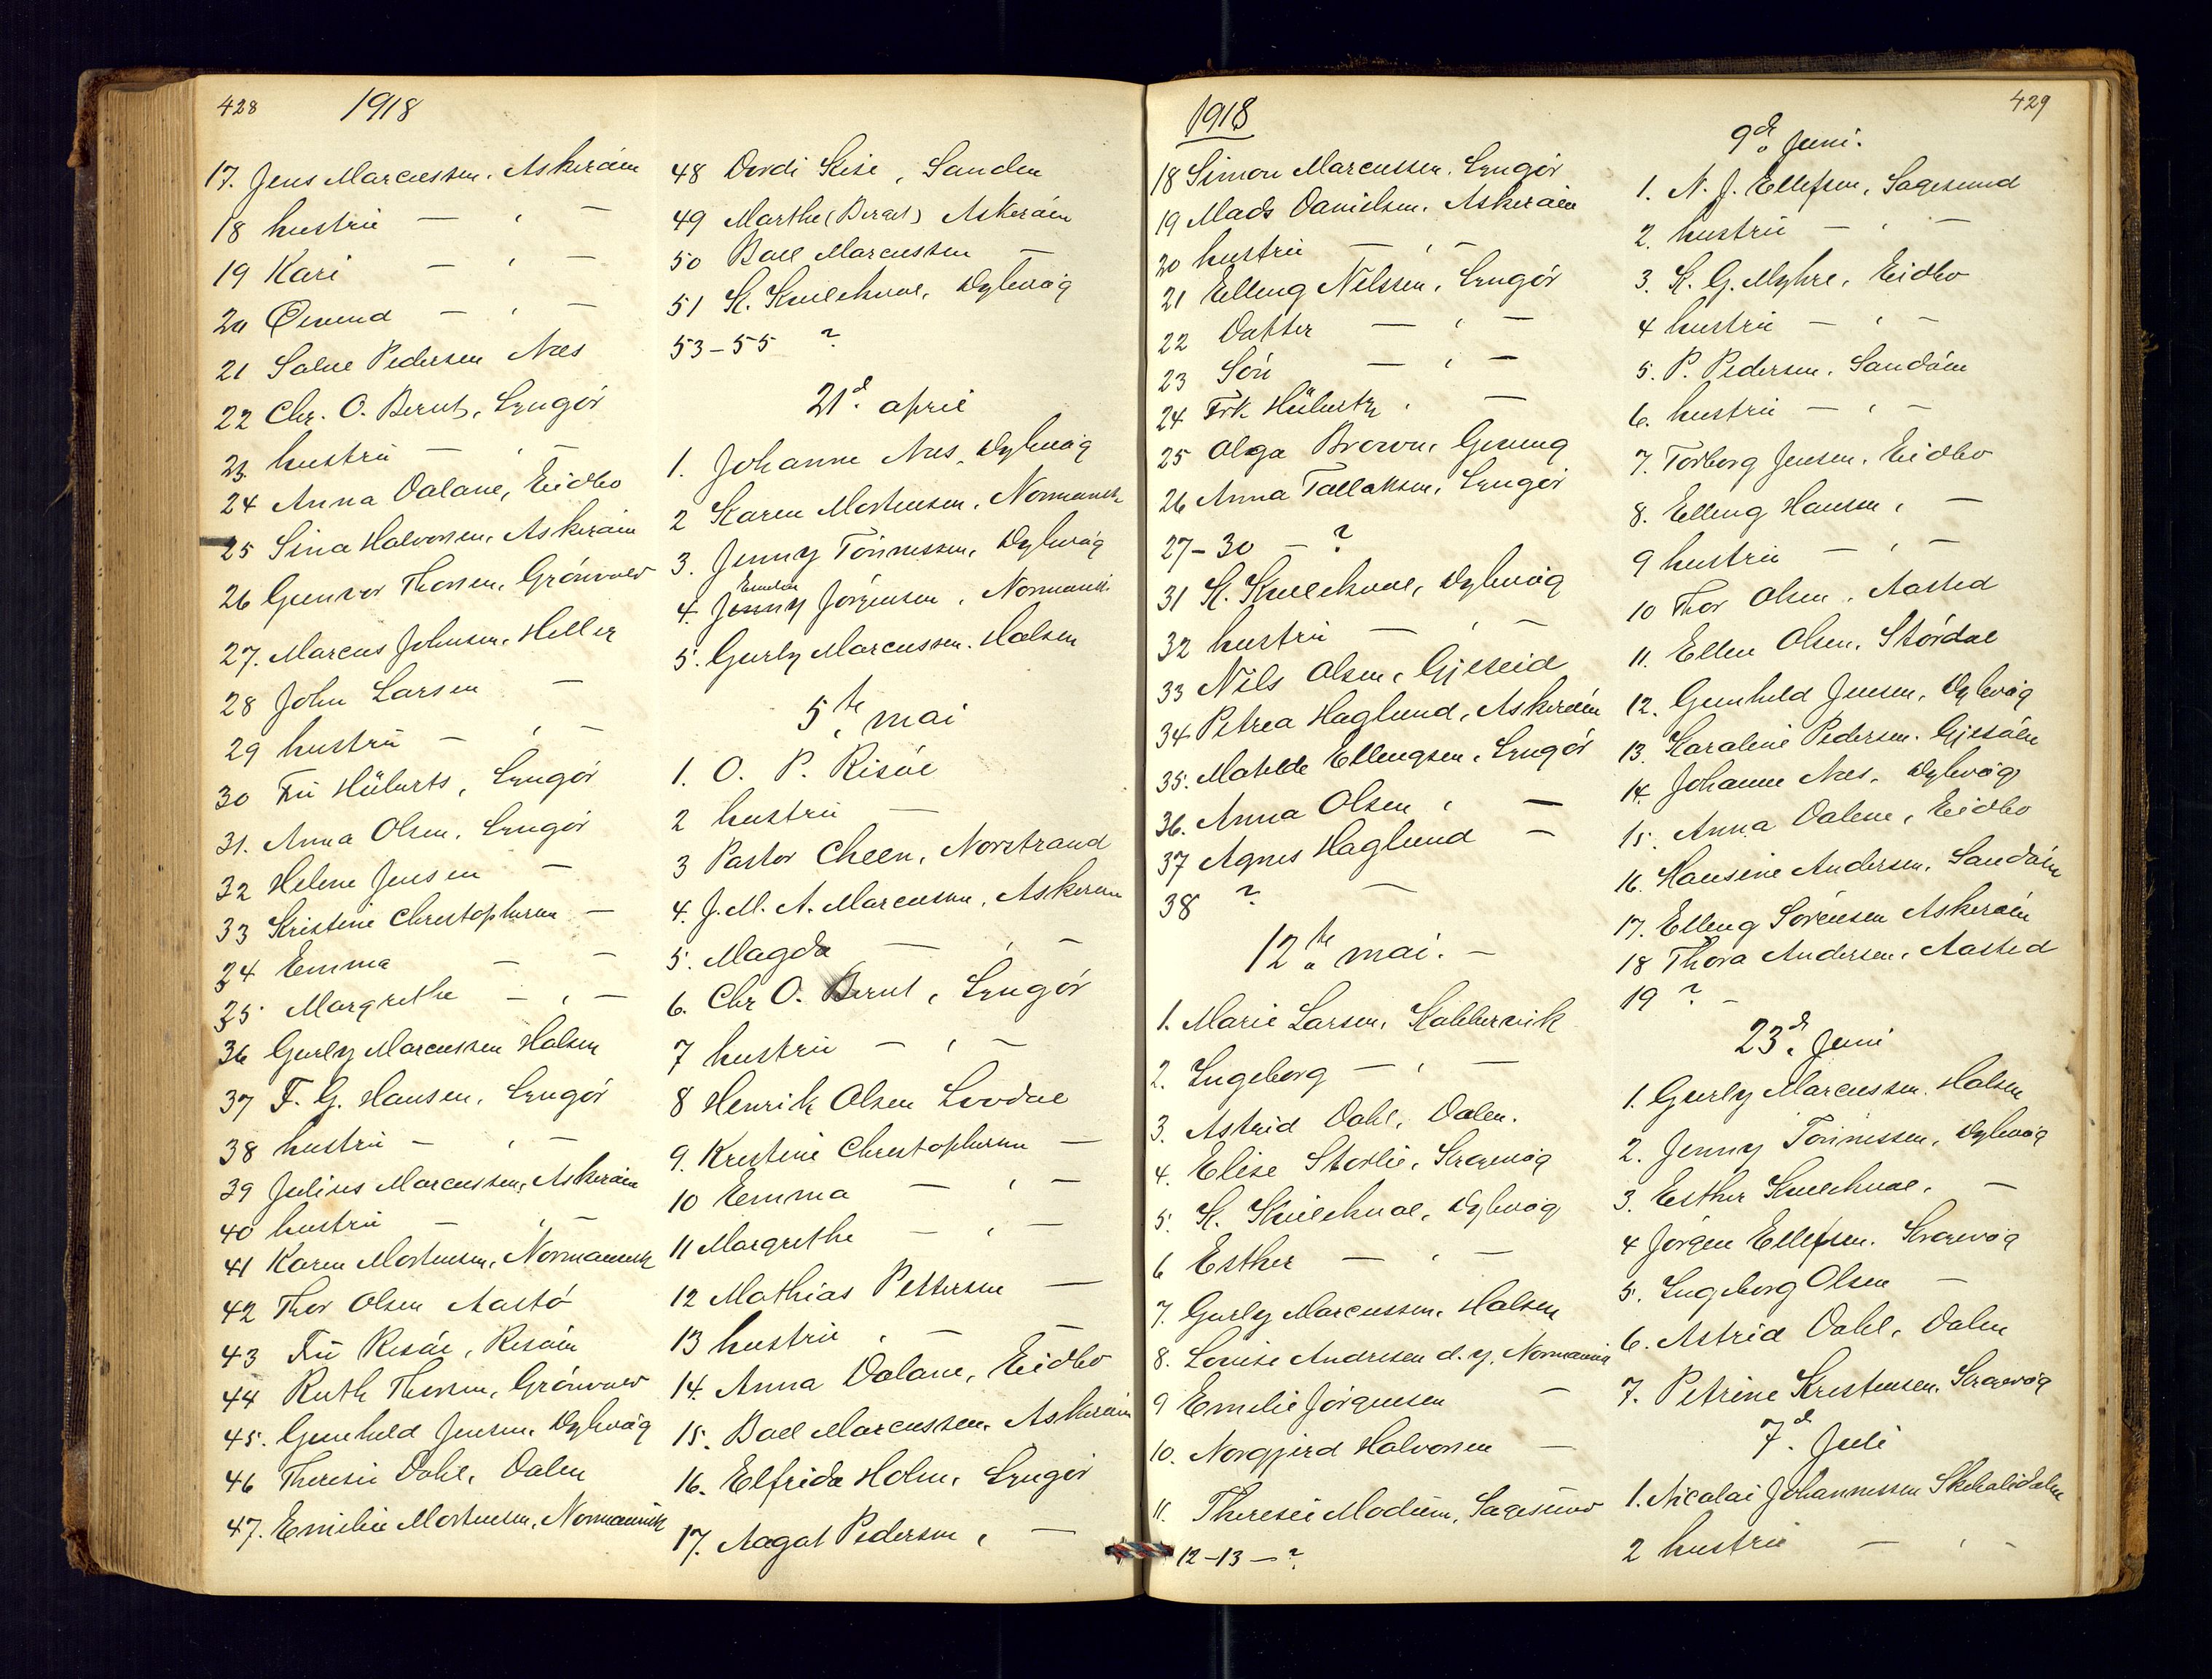 428 1918
17. Jens Marcussen. Askerøien
18 hustru — , —
19 Kari — , —
20 Øivind — , —
21 Salve Pedersen Næs
22 Chr. O. Bernts, Lyngör
23. hustru — , —
24 Anna Dalane, Eidbo
25 Sina Halvorsen. Askerøien
26 Gunvor Thorsen, Grönvold
27. Marcus Johnsen. Heller
28 John Larsen —
29 hustru — , —
30 Fru Hüberts, Lyngör
31. Anna Olsen. Lyngör
32 Helene Jensen —
33 Kristine Christophersen —
34 Emma — —
35. Margrethe — , —
36 Gurly Marcussen Holsen
37 F. G. Hansen, Lyngör
38 hustru — , —
39 Julius Marcussen, Askerøien
40 hustru — , —
41 Karen Mortensen, Normanvik
42 Thor Olsen Aastö
43 Fru Risöe, Risöin
44 Ruth Thorsen, Grönvold
45. Gunhild Jensen, Dybvåg
46 Theresie Dahl, Dalen
47. Emilie Mortensen, Normanvik
48 Dordi Kise, Sanden
49 Marthe (Berget) Askeröien
50 Boel Marcussen —
51 K. Knechval, Dybvåg
53–55 ?
21d. april
1. Johanne Næs, Dybvåg
2 Karen Mortensen, Normanvik
3. Jenny Tönnessen, Dybvåg
Emilie
4. Jenny Jörgensen, Normanvik
5. Gurly Marcussen. Holsen
5te. mai
1. O. P. Risöe
2 hustru —
3 Pastor Cheen, Norstrand
4. J. M. A. Marcussen, Askeröien
5. Magda — , —
6. Chr O. Bernt, Lyngör
7 hustru — , —
8 Henrik Olsen Lovdal
9. Kristine Christophersen —
10 Emma — , —
11 Margrethe — , —
12 Mathias Pettersen —
13 hustru , — —
14. Anna Dalane, Eidbo
15. Boel Marcussen. Askeröien
16. Elfrida Holm, Lyngör
17. Aagot Pedersen, —
1918
18 Simon Marcussen. Lyngör
19 Mads Danielsen. Askeröien
20 hustru — , —
21 Elling Nilssen, Lyngör
22 Datter — , —
23 Sön — , —
24 Frk Hübertz . —
25 Olga Brown, Gjeving
26 Anna Tallaksen, Lyngör
27–30 — ?
31 K. Knechval, Dybvåg
32 hustru — , —
33 Nils Olsen, Gjeseid
34 Petrea Haglund, Askeröien
35. Mathilde Ellingsen, Lyngör
36. Anna Olsen , —
37 Agnes Haglund —
38 ? —
12te. mai. —
1. Marie Larsen, Kabbervik
2. Ingeborg — , —
3. Astrid Dahl, Dalen.
4. Elise Storlie, Kragevåg
5. K. Knechval, Dybvåg
6 Esther — , —
7. Gurly Marcussen. Holsen
8. Louise Andresen d. y. Normanvik
9 Emilie Jörgensen —
10. Norgjerd Halvorsen —
11. Theresie Modum, Sagesund
12–13 — ?
429
9de. Juni.
1. N. J. Ellefsen, Sagesund
2. hustru — , —
3. K. G. Myhre, Eidbo
4 hustru — , —
5. P. Pedersen. Sandöen
6. hustru — , —
7. Torborg Jensen, Eidbo
8. Elling Hansen, —
9 hustru — , —
10 Thor Olsen, Aasted
11. Ellen Olsen. Stördal
12. Gunhild Jensen, Dybvåg
13. Karoline Pedersen. Gjesöen
14. Johanne Næs. Dybvåg
15. Anna Dalene, Eidbo
16. Hansine Andersen, Sandöen
17. Elling Sörensen Askeröien
18 Thora Andersen, Aasted
19 ? —
23d. Juni
1. Gurly Marcussen. Holsen
2. Jenny Tönnessen, Dybvåg
3. Esther Knechval, —
4 Jörgen Ellefsen. Kragevåg
5. Ingeborg Olsen —
6. Astrid Dahl, Dalen
7. Petrine Kristensen, Kragevåg
7d. Juli
1. Nicolai Johannessen
2 hustru — , —